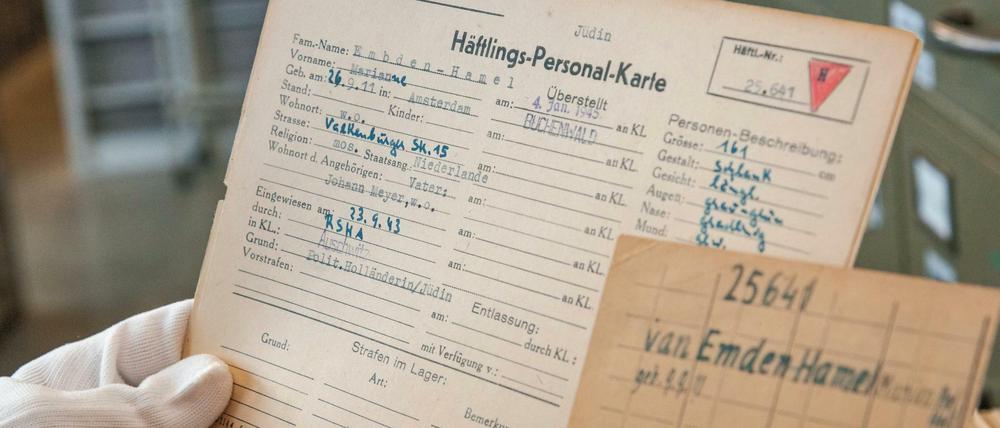 Jüdin
Häftlings-Personal-Karte
Häftl.-Nr.:
25.641
H
Fam.-Name: Embden-Hamel
Vorname: Marianne
Geb. am: 26.9.11 in: Amsterdam
Stand: Kinder:
Wohnort: w.o.
Strasse: Valkenburger Sk. 15
Religion: mos. Staatsang. Niederlande
Wohnort d. Angehörigen: Vater:
Johann Meyer, w.o.
Eingewiesen am: 23.9.43
durch: RSHA
in KL.: Auschwitz
Grund: Polit.Holländerin/Jüdin
Vorstrafen:
Überstellt
am: 4. Jan. 1945 an KL.
BUCHENWALD
am: an KL.
am: an KL.
am: an KL.
am: an KL.
am: an KL.
Entlassung:
am: durch KL.:
mit Verfügung v.:
Personen-Beschreibung:
Grösse: 161 cm
Gestalt: schlank
Gesicht: längl.
Augen: grau-grün
Nase: gradlinig
Mund:
Strafen im Lager:
Grund: Art:
25641
van Emden-Hamel